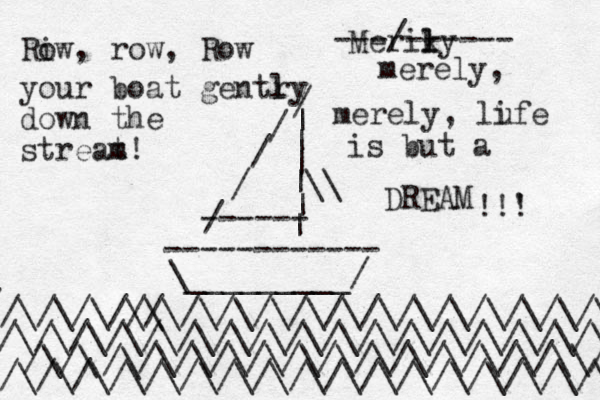 Row, row, Row
your boat gently
down the
stream!
Merily
merely,
merely, liufe
is but a
DREAM !!!